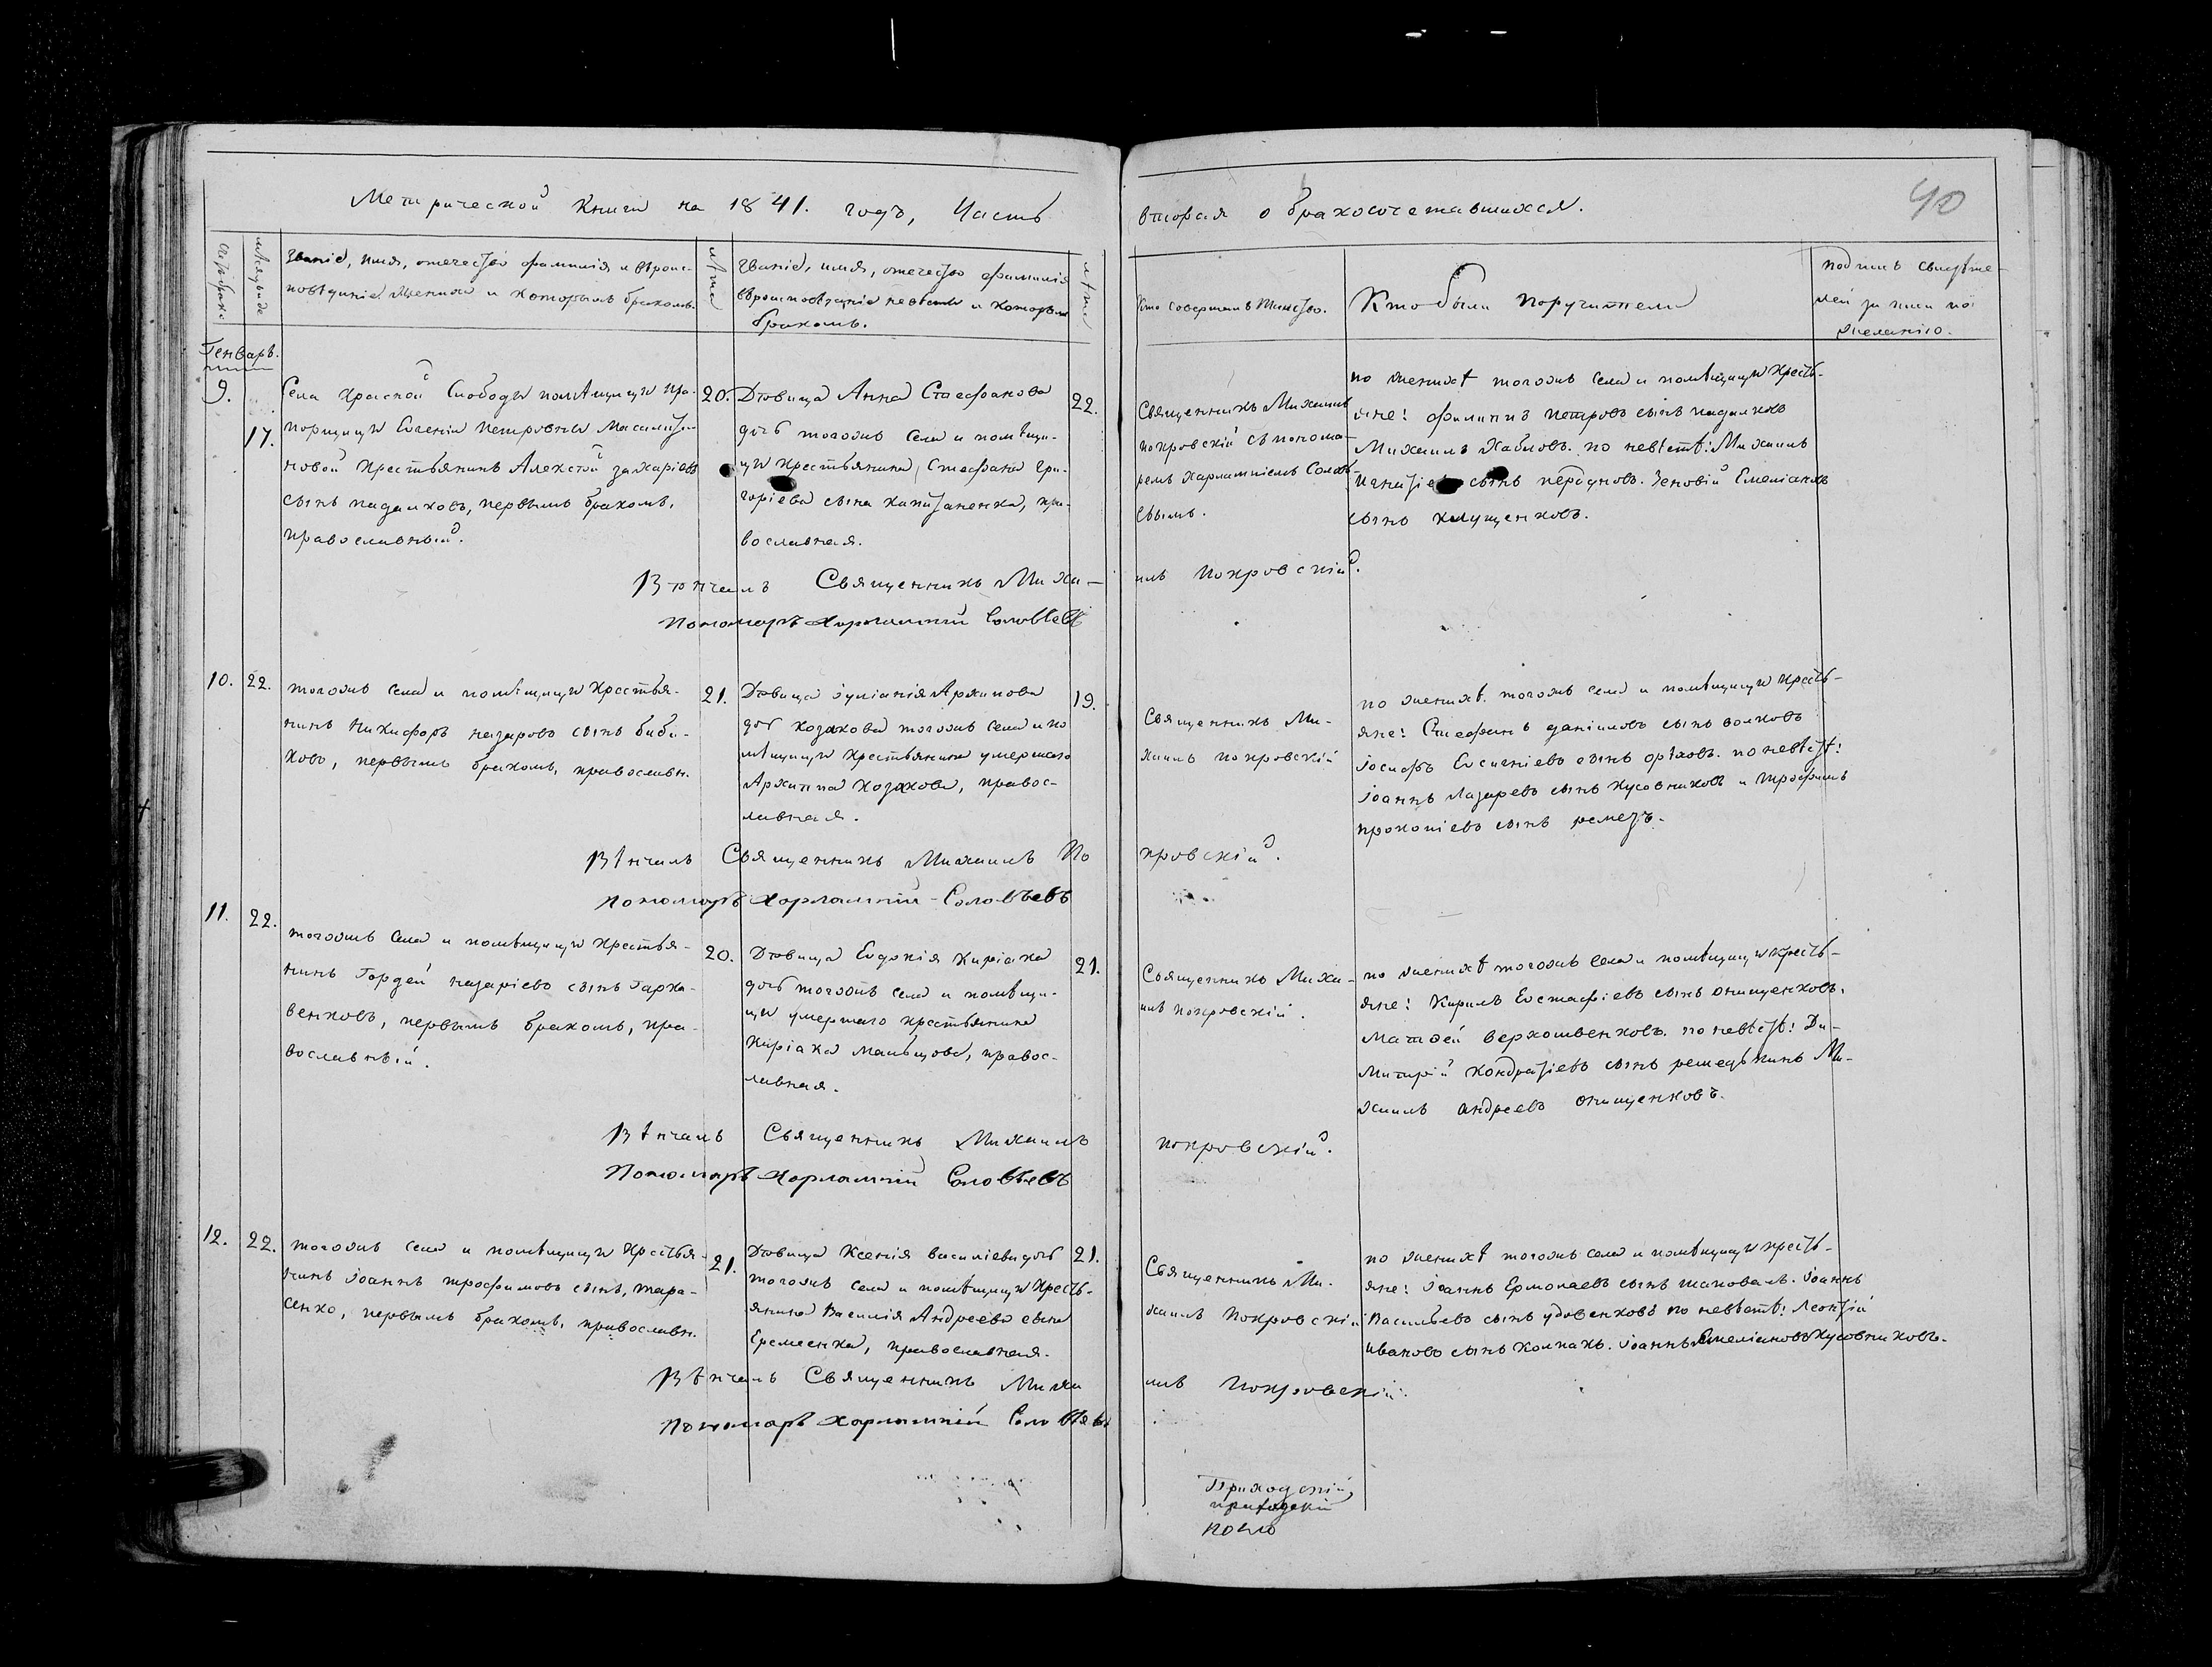 Метрической Книги на 1841. годъ, Часть
вторая о бракосочетавшихся.
40
Счетъ браковъ
Мѣсяцъ и день
Званіе, имя, отечество фамилія и вѣроис-
повѣданіе жениха и которымъ бракомъ.
лѣта
Званіе, имя, отечество фамилія
вѣроисповѣданіе невѣсты и которымъ
бракомъ.
лѣта
Кто совершалъ таинство.
Кто были поручители
подпись свидѣте-
лей за ними по
желанію.
Генварь.
9.
17.
Села Красной Слободы помѣщицы пра-
порщицы Евгеніи Петровны
новой крестьянинъ Алексѣй Захаріевъ
сынъ Падалковъ, первымъ бракомъ,
православный.
20.
Дѣвица Анна Стефанова
дочь тогожъ села и помѣщи-
цы крестьянина Стефана Гри-
горіева сына Капитаненка, пра-
вославная.
22.
Священникъ Михаилъ
Покровскій съ понома-
ремъ Харлампіемъ Соловь-
евымъ.
по женихѣ тогожъ села и помѣщицы кресть-
яне: Филиппъ Петровъ сынъ Падалковъ
Михаилъ Хабловъ. по невѣстѣ: Михаилъ
Игнатіевъ сынъ Зеновій Емеліановъ
сынъ
Вѣнчалъ Священникъ Миха-
илъ Покровскій.
Пономарь Харлампій Соловьевъ
10.
22.
тогожъ села и помѣщицы крестья-
нинъ Никифоръ Назаровъ сынъ Биби-
ковъ, первымъ бракомъ, православн.
21.
Дѣвица Іуліанія Архипова
дочь Козакова тогожъ села и по
мѣщицы крестьянина умершаго
Архипа Козакова, правос-
лавная.
19.
Священникъ Ми-
хаилъ Покровскій
по женихѣ. тогожъ села и помѣщицы кресть-
яне: Стефанъ Даніиловъ сынъ Волковъ
Іосифъ Евсигніевъ сынъ Орѣховъ. по невѣстѣ:
Іоаннъ Лазаревъ сынъ Кусовниковъ и Трофимъ
Прокопіевъ сынъ Ремезъ.
Вѣнчалъ Священникъ Михаилъ По
кровскій.
Пономарь Харлампій Соловьевъ
11.
22.
тогожъ села и помѣщицы крестья-
нинъ Гордей Назаріевъ сынъ Гарка-
венковъ, первымъ бракомъ, пра-
вославный.
20.
Дѣвица Евдокія Киріака
дочь тогожъ села и помѣщи-
цы умершаго крестьянина
Киріака Мальцова, правос-
лавная.
21.
Священникъ Миха-
илъ Покровскій.
по женихѣ тогожъ села и помѣщицы кресть-
яне: Кирилъ Евстафіевъ сынъ Онищенковъ.
Матѳей Верхошвенковъ. по невѣстѣ: Ди-
митрій Кондратіевъ сынъ Ми-
хаилъ Андреевъ Онищенковъ.
Вѣнчалъ Священникъ Михаилъ
Покровскій.
Пономарь Харлампій Соловьевъ
12.
22.
тогожъ села и помѣщицы крестья-
нинъ Іоаннъ Трофимовъ сынъ, Тара-
сенко, первымъ бракомъ, православн.
21.
Дѣвица Ксенія Василіева дочь
тогожъ села и помѣщицы кресть-
янина Василія Андреева сына
Еремеенка, православная.
21.
Священникъ Ми-
хаилъ Покровскій
по женихѣ тогожъ села и помѣщицы кресть-
яне: Іоаннъ Ермолаевъ сынъ Шаповалъ. Іоаннъ
Васильевъ сынъ Удовенковъ по невѣстѣ: Леонтій
Ивановъ сынъ Колпакъ. Іоаннъ Емеліановъ Кусовниковъ.
Вѣнчалъ Священникъ Миха
илъ Покровскій.
Пономарь Харлампій Соловьевъ
Приходскій